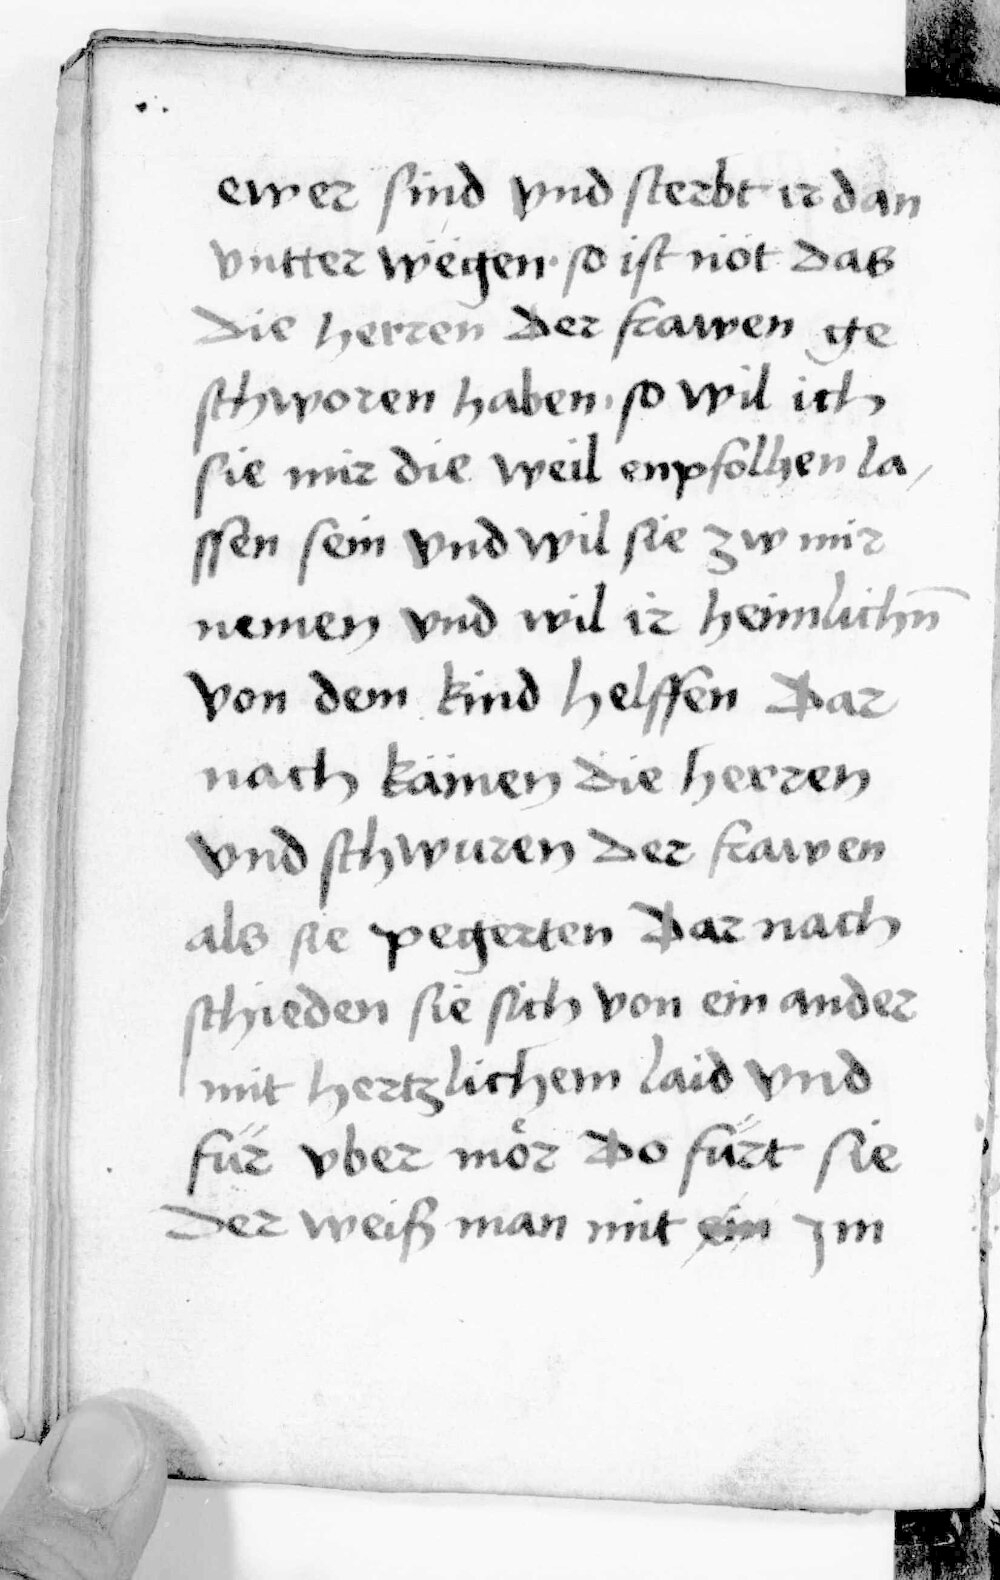 ewer sind vnd sterbt ir dan
vntter wegen · so ist not das
die herren der frawen ge
schworen haben · so wil ich
sie mir die weil enpfolhen la,
ssen sein vnd wil sie zw mir
nemen vnd wil ir heimlichn̄
von dem kind helffen Dar
nach kämen die herren
vnd schwuren der frawen
als sie pegerten Dar nach
schieden sie sich von ein ander
mit hertzlichem laid vnd
für vber mör Do fürt sie
der weiß man mit ein ym